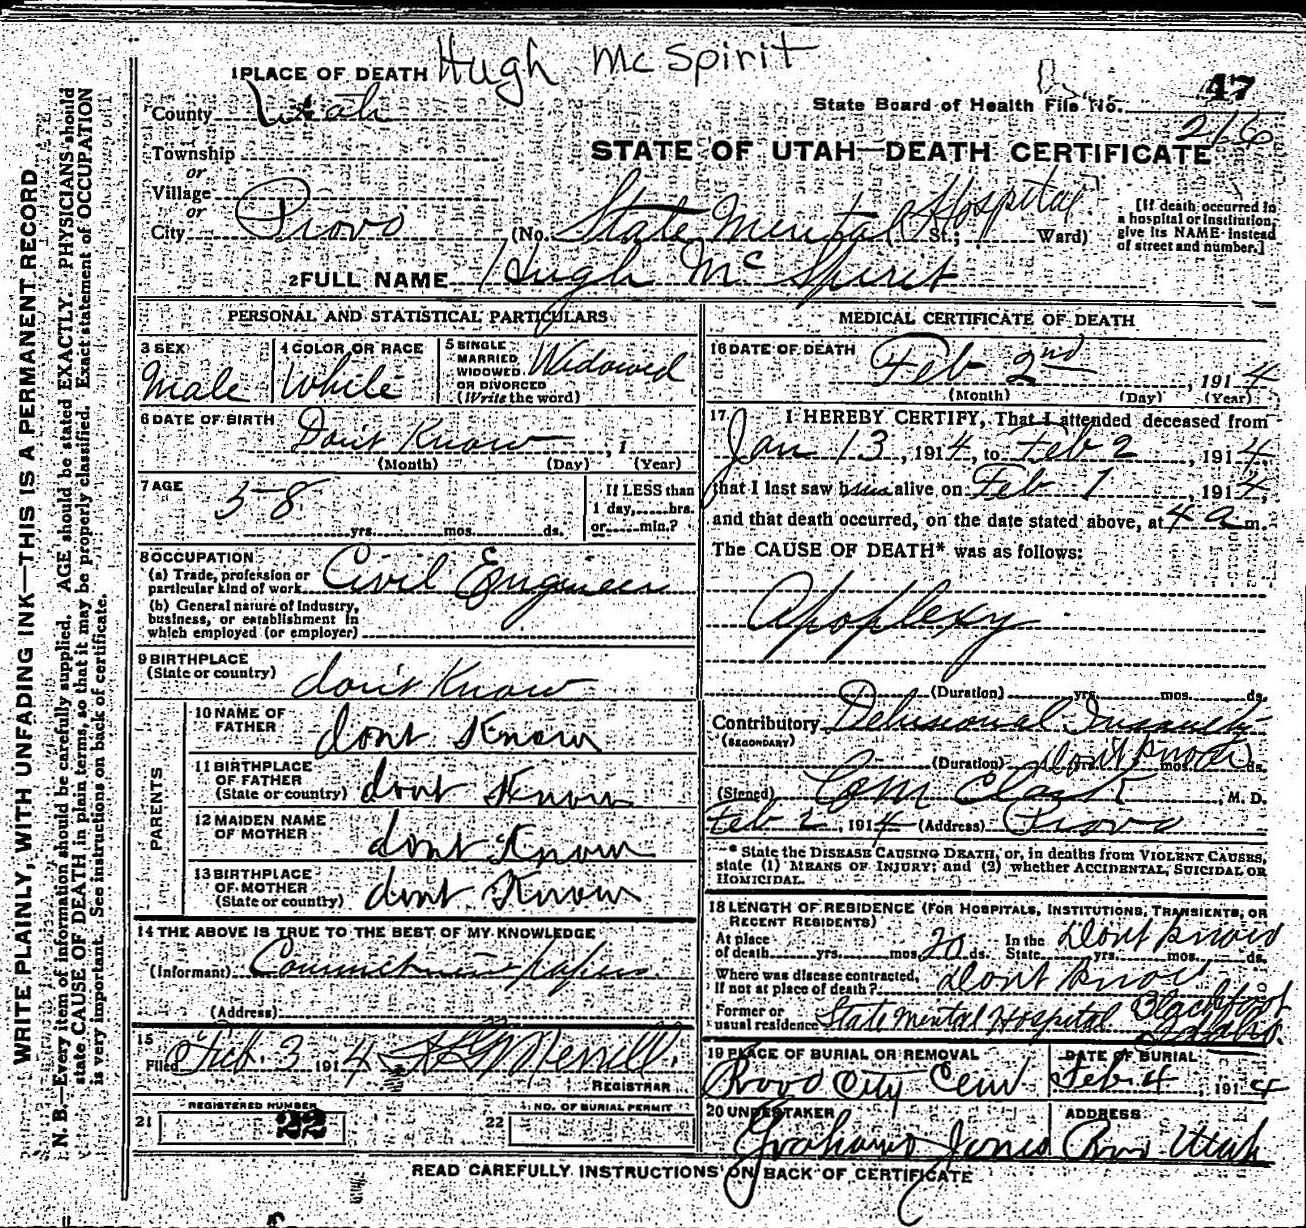 Hugh McSpirit
1 PLACE OF DEATH
County Utah
State Board of Health File No. 47
216
Township
or
Village
or
City Provo
STATE OF UTAH—DEATH CERTIFICATE
(No. State Mental Hospital St.; Ward)
[If death occurred in a hospital or institution, give its NAME instead of street and number.]
2 FULL NAME Hugh Mc Spirit
PERSONAL AND STATISTICAL PARTICULARS
3 SEX Male
4 COLOR OR RACE White
5 SINGLE MARRIED, WIDOWED, OR DIVORCED (Write the word) Widowed
6 DATE OF BIRTH Don't Know, 1
(Month) (Day) (Year)
7 AGE 58
yrs. mos. ds.
If LESS than 1 day, hrs. or min.?
8 OCCUPATION
(a) Trade, profession or particular kind of work Civil Engineer
(b) General nature of Industry, business, or establishment in which employed (or employer)
9 BIRTHPLACE (State or country) don't Know
PARENTS
10 NAME OF FATHER dont Know
11 BIRTHPLACE OF FATHER (State or country) dont Know
12 MAIDEN NAME OF MOTHER dont Know
13 BIRTHPLACE OF MOTHER (State or country) dont Know
14 THE ABOVE IS TRUE TO THE BEST OF MY KNOWLEDGE
(Informant) papers
(Address)
15 Filed Feb. 3 1914 Merrill.
REGISTRAR
21 REGISTERED NUMBER 22
22 NO. OF BURIAL PERMIT
MEDICAL CERTIFICATE OF DEATH
16 DATE OF DEATH Feb 2nd, 1914
(Month) (Day) (Year)
17. I HEREBY CERTIFY, That I attended deceased from
Jan 13, 1914, to Feb 2, 1914,
that I last saw him alive on Feb 1, 1914,
and that death occurred, on the date stated above, at 4 a m.
The CAUSE OF DEATH* was as follows:
Apoplexy
(Duration) yrs. mos. ds.
Contributory (SECONDARY) Delusional Insanity
(Duration) dont know yrs. mos. ds.
(Signed) Clark, M. D.
Feb 2, 1914 (Address) Provo
* State the DISEASE CAUSING DEATH, or, in deaths from VIOLENT CAUSES, state (1) MEANS OF INJURY; and (2) whether ACCIDENTAL, SUICIDAL OR HOMICIDAL.
18 LENGTH OF RESIDENCE (FOR HOSPITALS, INSTITUTIONS, TRANSIENTS, OR RECENT RESIDENTS)
At place of death yrs. mos. 20 ds. In the State Dont know yrs. mos. ds.
Where was disease contracted, If not at place of death? Dont know
Former or usual residence State Mental Hospital Blackfoot Idaho.
19 PLACE OF BURIAL OR REMOVAL Provo City Cem
DATE OF BURIAL Feb. 4, 1914
20 UNDERTAKER Jones
ADDRESS Provo Utah
READ CAREFULLY INSTRUCTIONS ON BACK OF CERTIFICATE
WRITE PLAINLY, WITH UNFADING INK—THIS IS A PERMANENT RECORD
N. B.—Every item of information should be carefully supplied. AGE should be stated EXACTLY. PHYSICIANS should
state CAUSE OF DEATH in plain terms, so that it may be properly classified. Exact statement of OCCUPATION
is very important. See instructions on back of certificate.